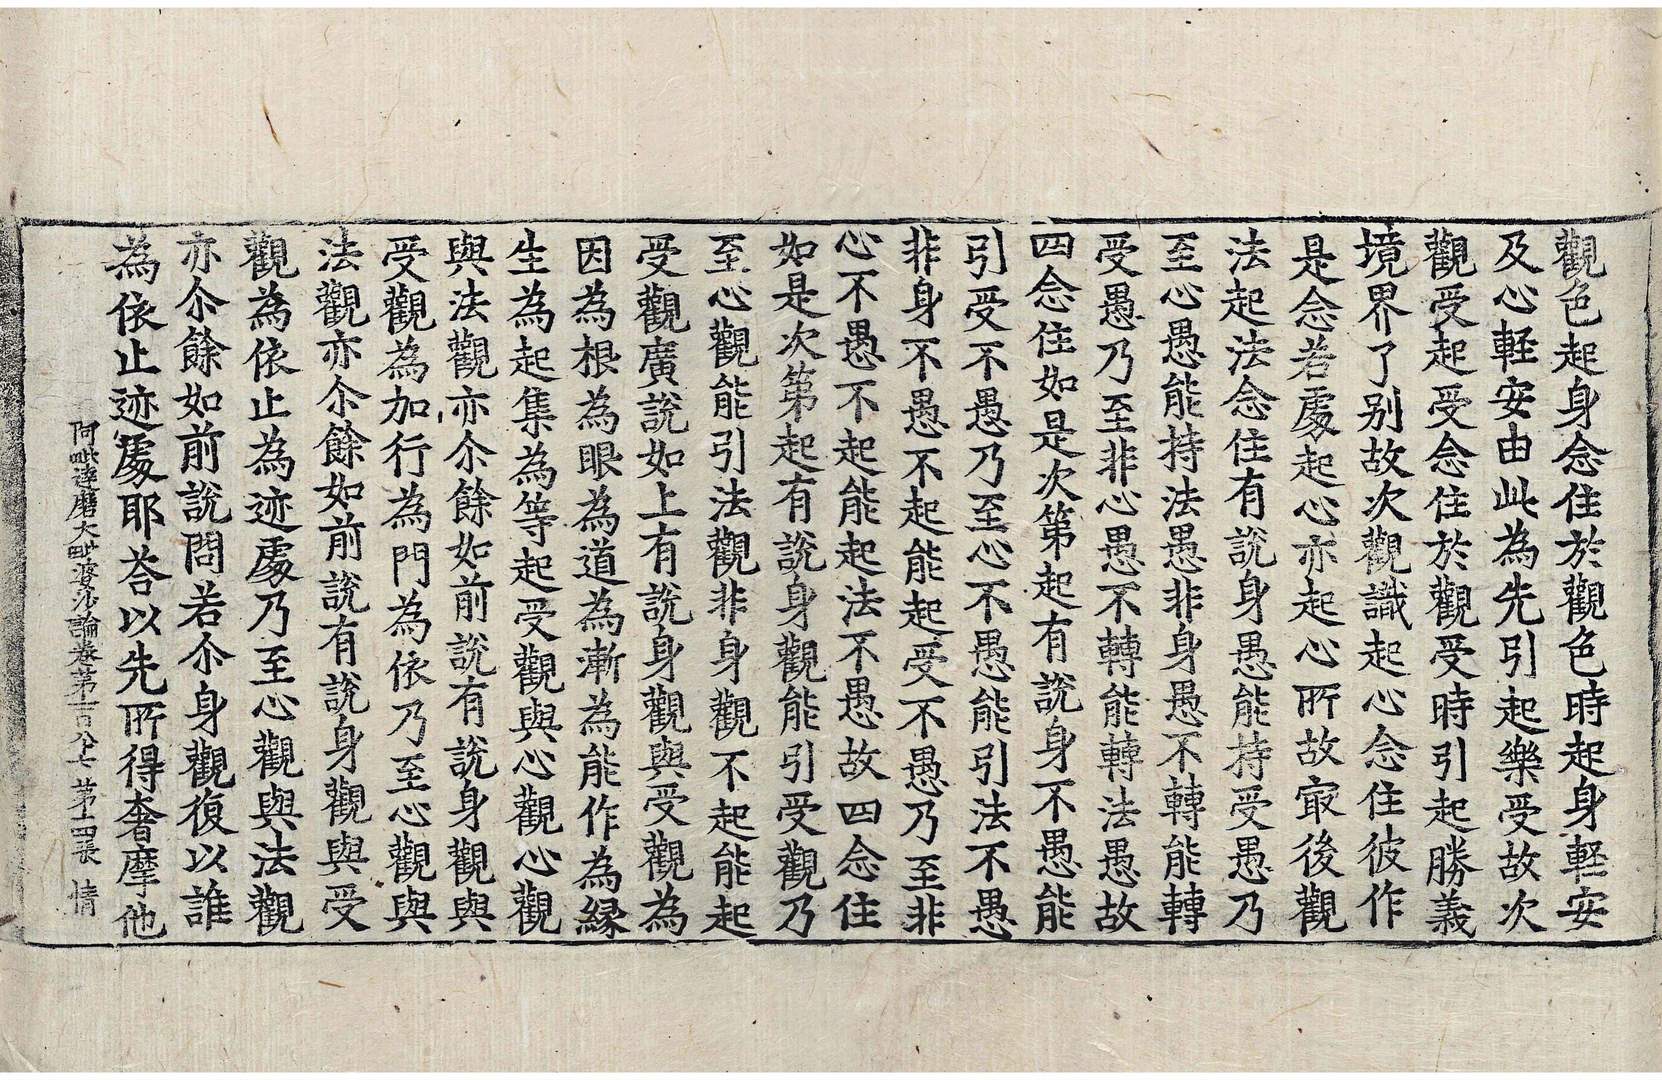 觀色起身念住於觀色時起身軽安
及心軽安由此為先引起樂受故次
觀受起受念住於觀受時引起勝義
境界了别故次觀識起心念住彼作
是念若處起心亦起心所故冣後觀
法起法念住有說身愚能持受愚乃
至心愚能持法愚非身愚不轉能轉
受愚乃至非心愚不轉能轉法愚故
四念住如是次第起有說身不愚能
引受不愚乃至心不愚能引法不愚
非身不愚不起能起受不愚乃至非
心不愚不起能起法不愚故四念住
如是次第起有說身觀能引受觀乃
至心觀能引法觀非身觀不起能起
受觀廣說如上有說身觀與受觀為
因為根為眼為道為漸為能作為縁
生為起集為等起受觀與心觀心觀
與法觀亦尒餘如前說有說身觀與
受觀為加行為門為依乃至心觀與
法觀亦尒餘如前說有說身觀與受
觀為依止為迹處乃至心觀與法觀
亦尒餘如前說問若尒身觀復以誰
為依止迹處耶荅以先所得奢摩他
阿毗達磨大毗婆沙論卷第一百八十七 第十四張 情